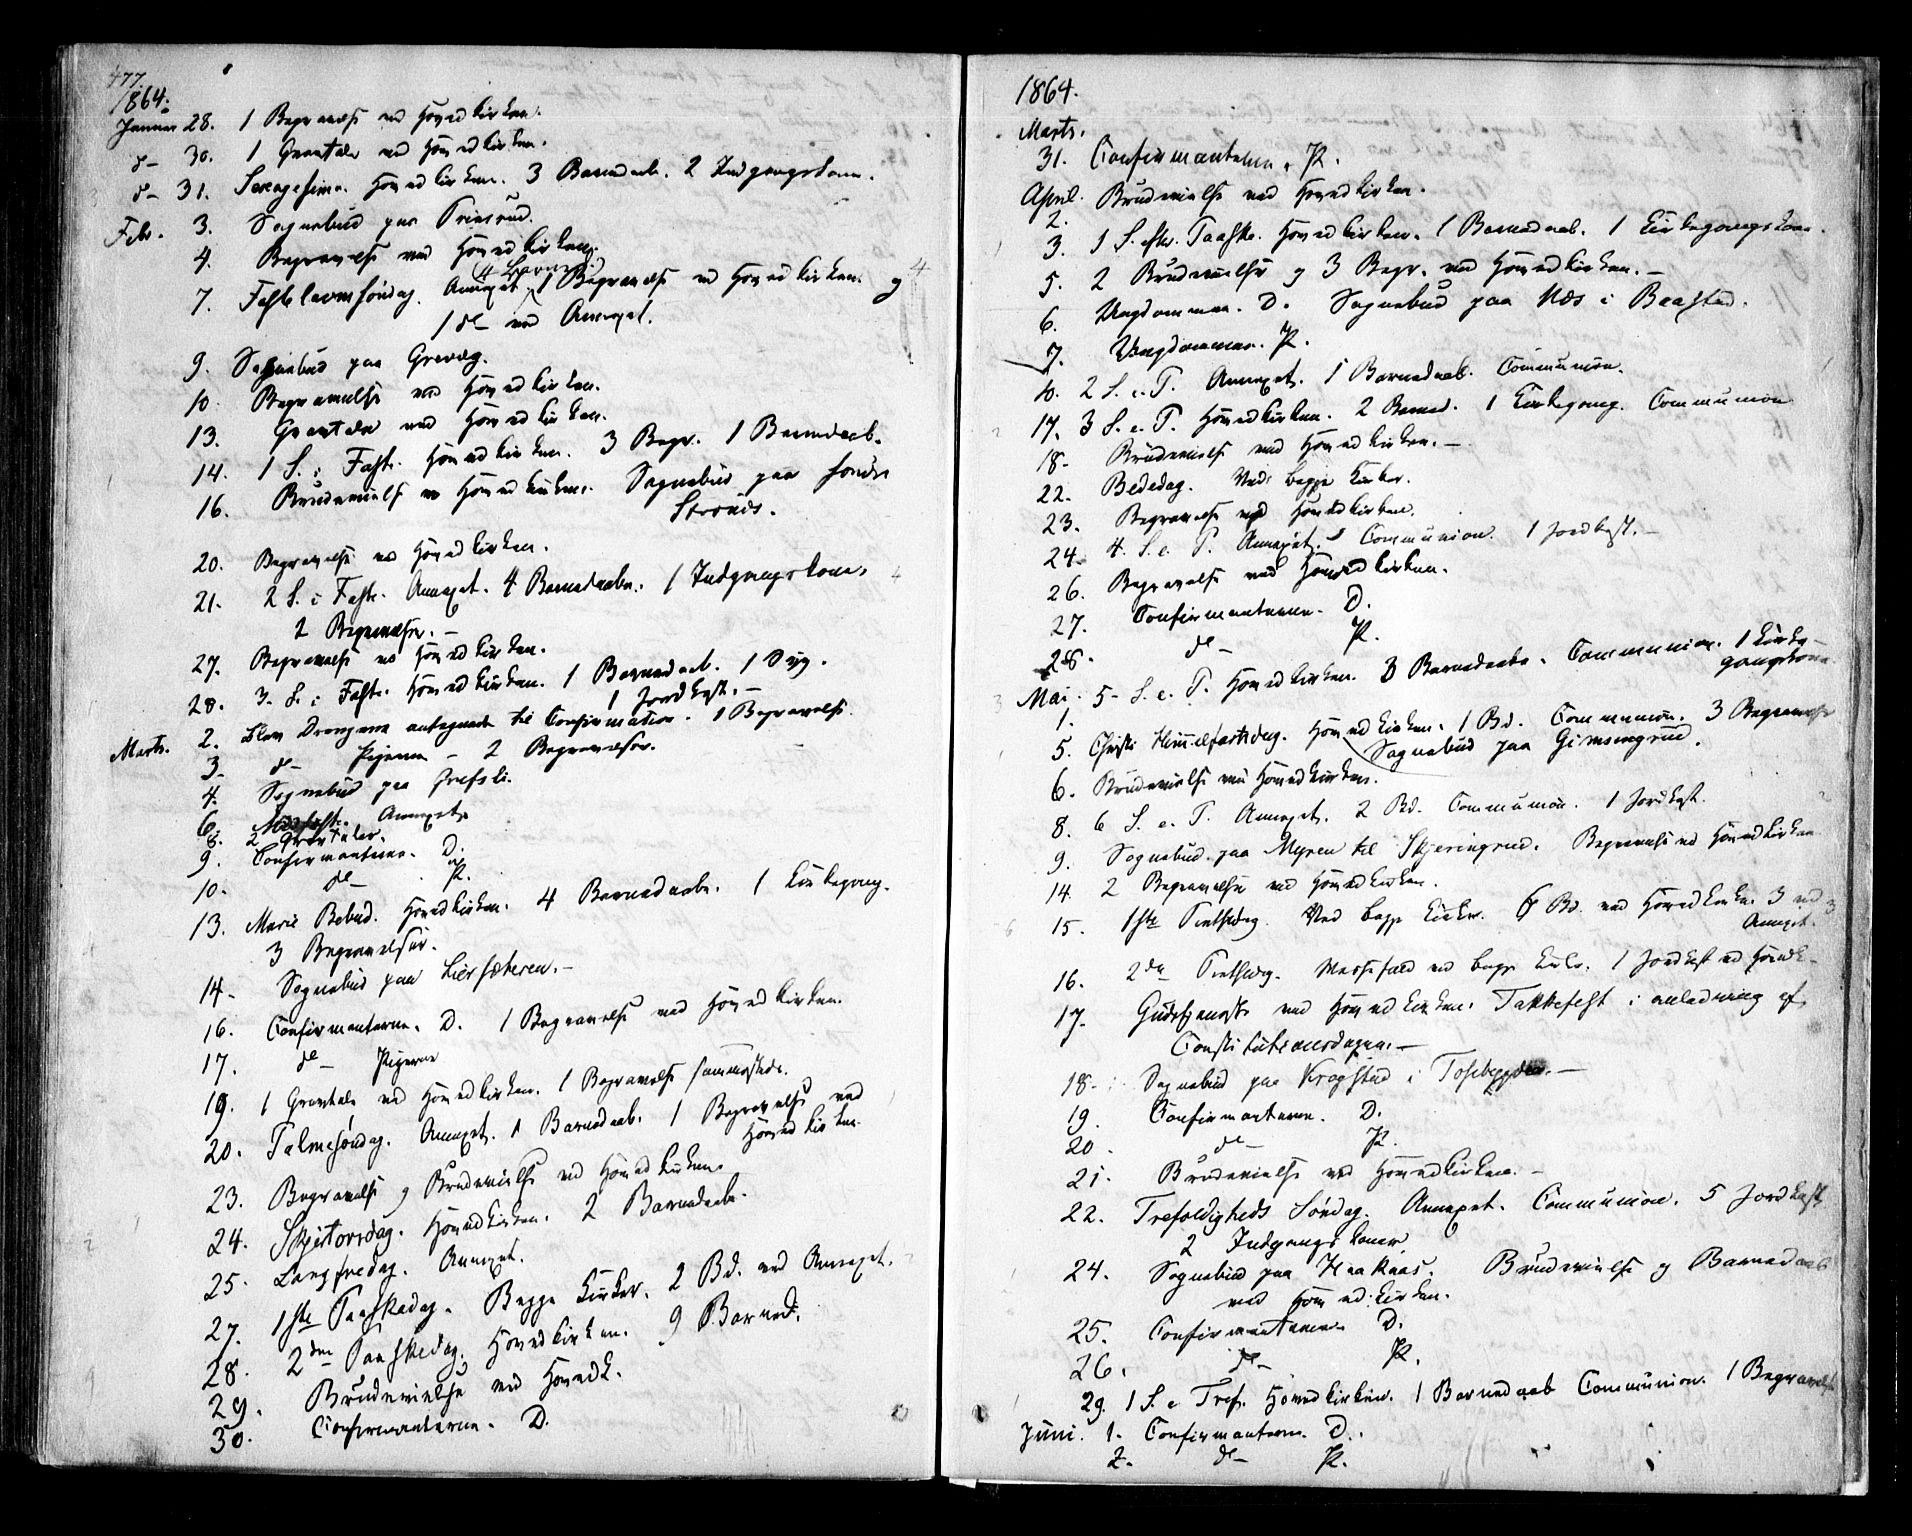 477.
1864.
Januar 28. 1 Begravelse ved Hovedkirken.
d⁰ 30. 1 Gravtale ved Hovedkirken.
d⁰ 31. Sexagesima. Hovedkirken. 3 Barnedaab. 2 Indgangskoner.
Febr. 3. Sognebud paa
4. Begravelse ved Hovedkirken.
7. Fastelavnssøndag. Annexet. 1 Begravelse ved Hovedkirken. og
1 d⁰ ved Annexet.
9. Sognebud paa
10. Begravelse ved Hovedkirken.
13. Gravtale ved Hovedkirken.
14. 1 S. i Faste. Hovedkirken. 3 Begr. 1 Barnedaab.
16. Brudevielse ved Hovedkirken. Sognebud paa søndre
20. Begravelse ved Hovedkirken.
21. 2 S. i Faste. Annexet. 4 Barnedaabe. 1 Indgangskone.
2 Begravelser.
27. Begravelse ved Hovedkirken.
28. 3. S. i Faste. Hovedkirken. 1 Barnedaab. 1
1 Jordkast.
Marts. 2. Blev Drengene antegnede til Confirmation. 1 Begravelse.
3. d⁰ Pigerne 2 Begravelser.
4. Sognebud paa
6. Midfaste. Annexet.
8. 2 Gravtaler.
9. Confirmanterne. D.
10. d⁰ P.
13. Marie Bebud. Hovedkirken. 4 Barnedaabe. 1 Kirkegang.
3 Begravelser.
14. Sognebud paa Liersæteren.
16. Confirmanterne. D. 1 Begravelse ved Hovedkirken.
17. d⁰ Pigerne
19. 1 Gravtale ved Hovedkirken. 1 Begravelse sammesteds.
20. Palmesøndag. Annexet. 1 Barnedaab. 1 Begravelse ved
Hovedkirken.
23. Begravelse og Brudevielse ved Hovedkirken.
24. Skjertorsdag. Hovedkirken. 2 Barnedaabe.
25. Langfredag. Annexet.
27. 1ste Paaskedag. Begge Kirker. 2 Bd. ved Annexet.
28. 2den Paaskedag. Hovedkirken. 9 Barned.
29. Brudevielse ved Hovedk.
30. Confirmanterne. D.
1864.
Marts.
31. Confirmanterne. P.
April. Brudevielse ved Hovedkirken.
2.
3. 1 S. efter Paaske. Hovedkirken. 1 Barnedaab. 1 Kirkegangskone.
5. 2 Brudevielser og 3 Begr. ved Hovedkirken.
6. Ungdommen. D. Sognebud paa Næs i Baastad.
7. Ungdommen. P.
10. 2 S. e. P. Annexet. 1 Barnedaab. Communion.
17. 3 S. e. P. Hovedkirken. 2 Barned. 1 Kirkegang. Communion
18. Brudevielse ved Hovedkirken.
22. Bededag. Ved begge Kirker.
23. Begravelse ved Hovedkirken.
24. 4. S. e. P. Annexet. Communion. 1 Jordkast.
26. Begravelse ved Hovedkirken.
27. Confirmanterne. D.
28. d⁰ P.
Mai. 5. S. e. P. Hovedkirken. 3 Barnedaabe. Communion. 1 Kirke-
1. gangskone.
5. Christi Himmelfartsdag. Hovedkirken. 1 Bd. Communion. 3 Begravelser
Sognebud paa Gimsengrud.
6. Brudevielse ved Hovedkirken.
8. 6 S. e. P. Annexet. 2 Bd. Communion. 1 Jordkast.
9. Sognebud paa Myren til Skjeringrud. Begravelse ved Hovedkirken
14. 2 Begravelser ved Hovedkirken.
15. 1ste Pintsedag. Ved begge Kirker. 6 Bd. ved Hovedkirken 3 ved
Annexet.
16. 2den Pintsedag. Messefald ved begge Kirker. 1 Jordkast ved Hovedk.
17. Gudstjeneste ved Hovedkirken. Takkefest i anledning af
Constitutionsdagen.
18. Sognebud paa Krogstad i
19. Confirmanterne. D.
20 d⁰ P.
21. Brudevielse ved Hovedkirken.
22. Trefoldigheds Søndag. Annexet. Communion. 5 Jordkast
2 Indgangskoner
24. Sognebud paa Haakaas. Brudevielse og Barnedaab
ved Hovedkirken.
25. Confirmanterne D.
26. d⁰ P.
29. 1 S. e Tref. Hovedkirken. 1 Barnedaab Communion. 1 Begravelse
Juni. 1. Confirmanterne. D.
2. d⁰ P.